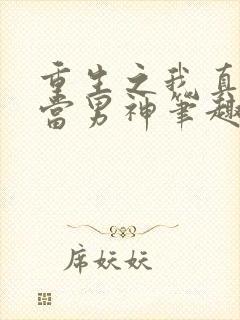 重生之我真
当男神笔趣
席妖妖